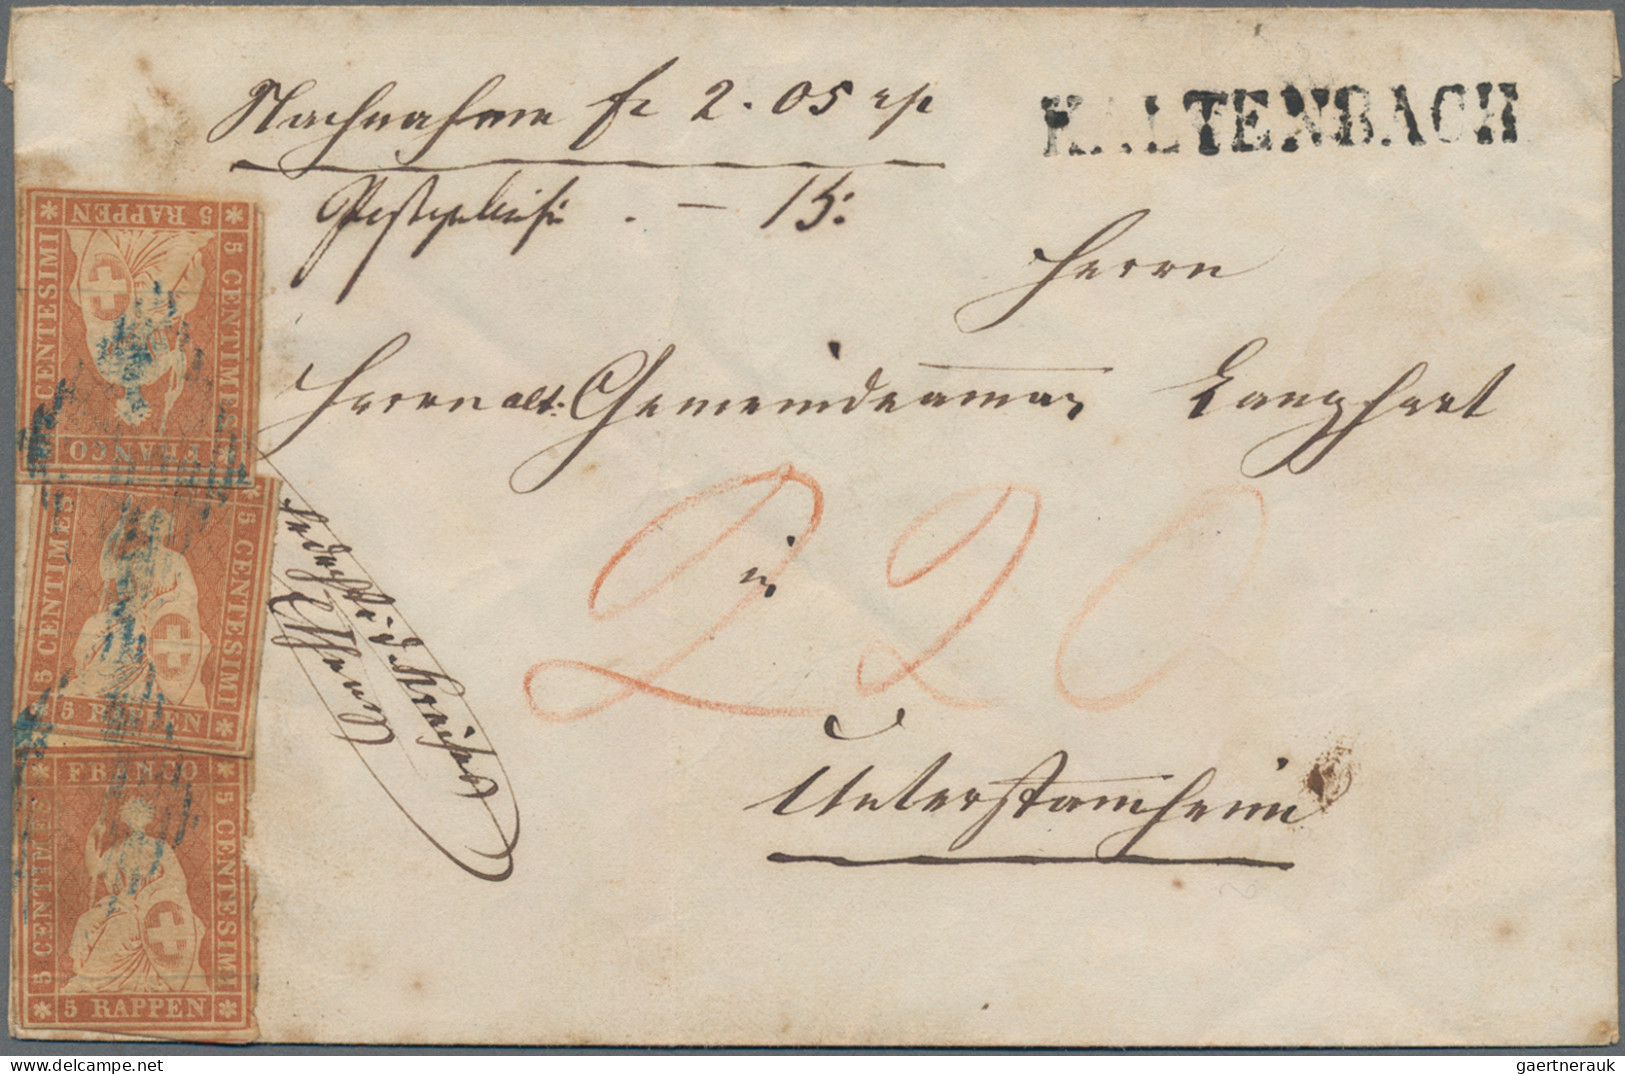 Nachnahme fr 2. 05 rp
KALTENBACH
Postgebühr . — 15:
Herrn
Herrn alt. Gemeindeamān Langhart
220
in
Unterstam̄heim
5 RAPPEN
5 CENTIMES
CENTESIMI
FRANCO
5 CENTIMES
5 CENTESIMI
5 RAPPEN
FRANCO
5 CENTIMES
5 CENTESIMI
5 RAPPEN
gaertnerauk